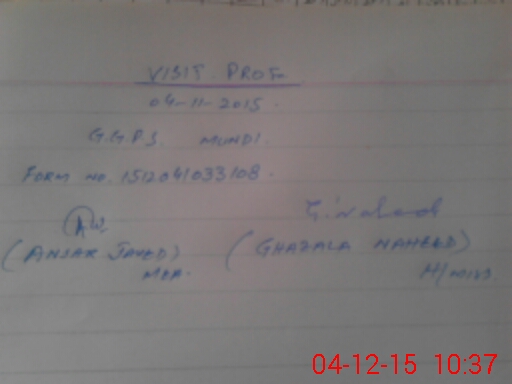 VISIT PROF.
04-11-2015.
G.G.P.S. MUNDI.
FORM NO. 1512041033108.
(ANSAR JAVED) (GHAZALA NAHEED)
MEA. H/MISS.
04-12-15 10:37